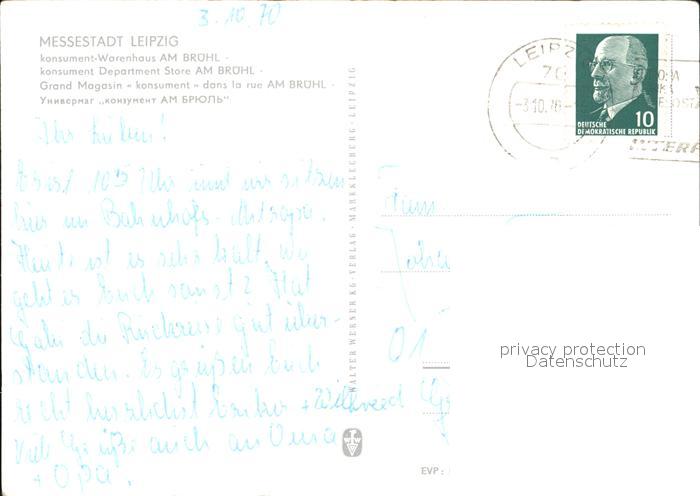 3.10.70
MESSESTADT LEIPZIG
konsument-Warenhaus AM BRÜHL ·
konsument Department Store AM BRÜHL ·
Grand Magasin « konsument » dans la rue AM BRÜHL ·
Универмаг „конзумент АМ БРЮЛЬ“
LEIPZ
70
-3.10.70
DEUTSCHE
DEMOKRATISCHE REPUBLIK
10
INTERP
Ihr Lieben!
Es ist 10 Uhr und wir sitzen
hier im Bahnhofs-Mitropa.
Heute ist es sehr kalt, wie
geht es Euch sonst? Hat
die Rückreise gut über-
standen. Es grüßen Euch
recht herzlichst + Wilfried
Viele Grüße auch an Oma
+ Opa.
WALTER WERNER KG · VERLAG · MARKKLEEBERG - LEIPZIG
Fam
Joha
01
EVP:
privacy protection
Datenschutz